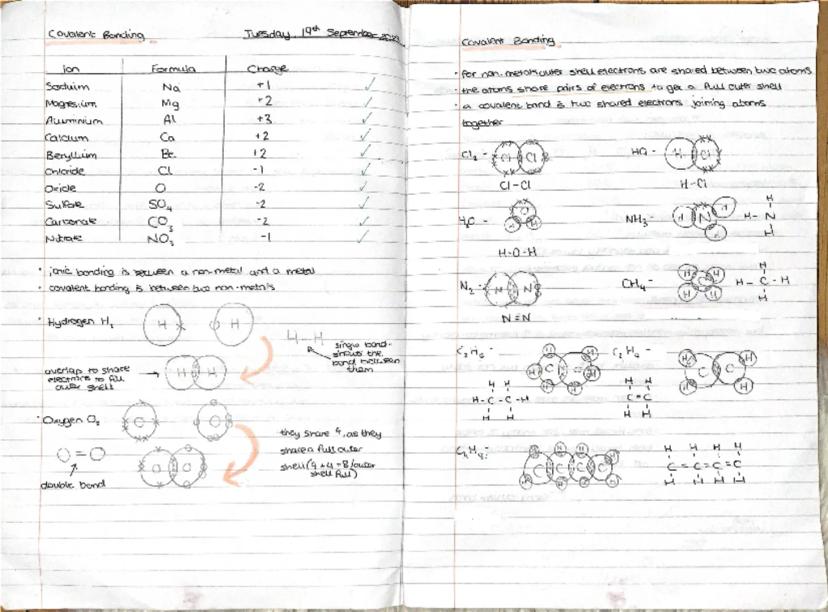 Covalent Bonding
Tuesday, 19th September
Ion Formula Charge
Sodium Na +1
Magnesium Mg +2
Aluminium Al +3
Calcium Ca +2
Beryllium Be +2
Chloride Cl -1
Oxide O -2
Sulfate SO4 -2
Carbonate CO3 -2
Nitrate NO3 -1
• ionic bonding is between a non-metal and a metal
• covalent bonding is between two non-metals
• Hydrogen H2
H H
H-H
single bond-
shows the
bond between
them
overlap to share
electrons to fill
outer shell
H H
• Oxygen O2
O O
O=O
double bond
O O
they share 4, as they
share a full outer
shell (4+4=8/outer
shell full)
Covalent Bonding
• For non-metals outer shell electrons are shared between two atoms
• the atoms share pairs of electrons to get a full outer shell
• a covalent bond is two shared electrons joining atoms
together
Cl2 - Cl Cl
Cl-Cl
HCl - H Cl
H-Cl
H2O - O H H
H-O-H
NH3 - H N H H
H-N H H
N2 - N N
N≡N
CH4 - H H C H H
H-C-H H H
C2H6 -
H H
H-C-C-H
H H
C2H4 -
H H
C=C
H H
C4H8:
H H H H
C=C=C=C
H H H H